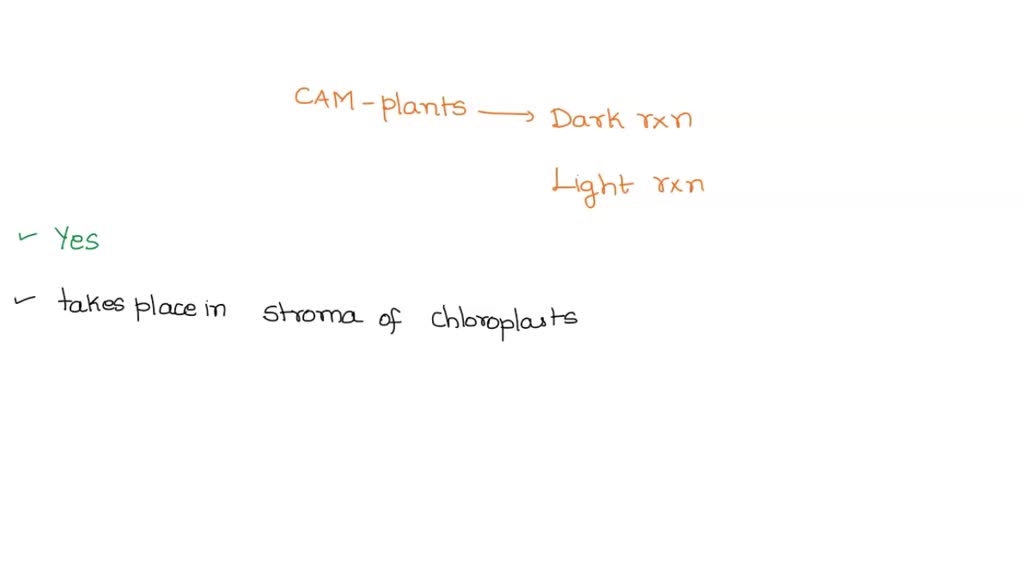 CAM - plants → Dark rxn
Light rxn
✓ Yes
✓ takes place in stroma of chloroplasts